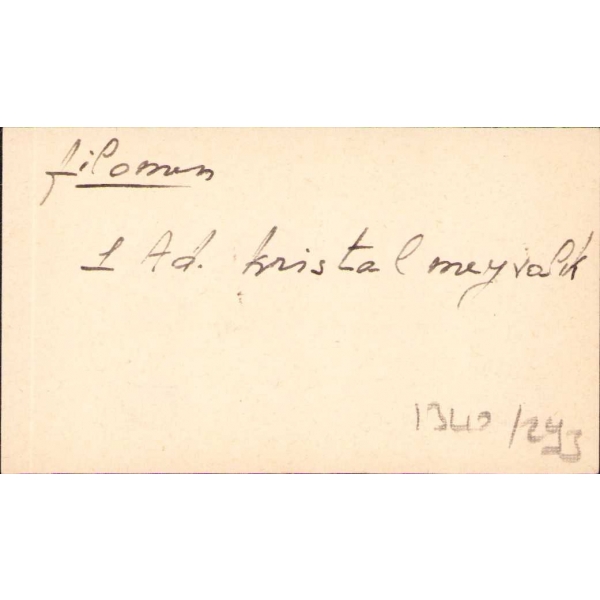 filomen
1 Ad. kristal meyvalık
1340/293